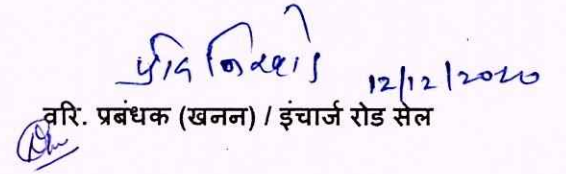 12/12/2020
वरि. प्रबंधक (खनन) / इंचार्ज रोड सेल